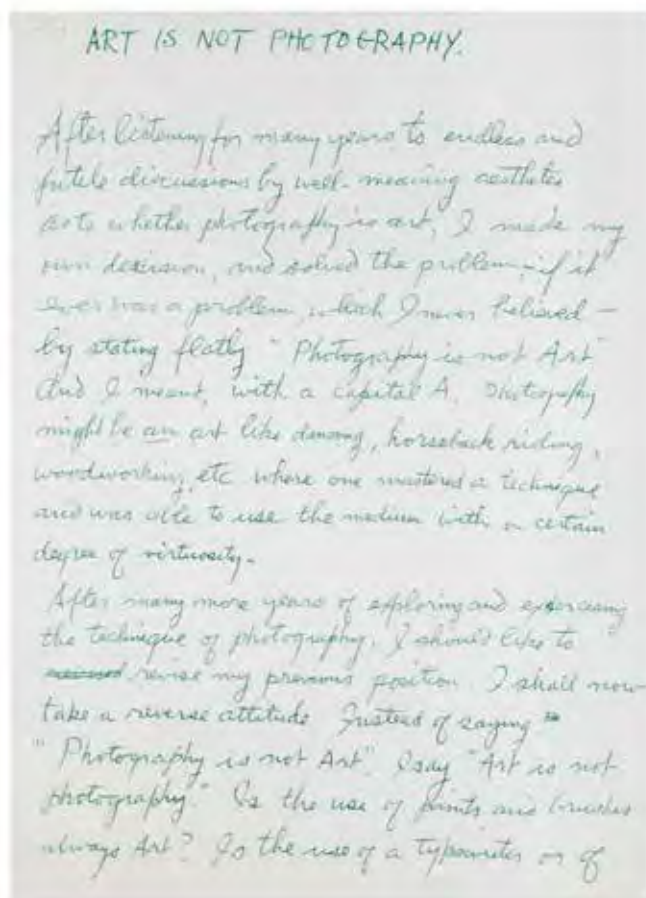 ART IS NOT PHOTOGRAPHY.
After listening for many years to endless and
futile discussions by well-meaning aesthetes
as to whether photography is art, I made my
own decision, and solved the problem, - if it
ever was a problem, which I never believed -
by stating flatly "Photography is not Art"
And I meant, with a capital A. Photography
might be an art like dancing, horseback riding,
woodworking, etc where one mastered a technique
and was able to use the medium with a certain
degree of virtuosity.
After many more years of exploring and exercising
the technique of photography, I should like to
revise my previous position. I shall now
take a reverse attitude Instead of saying
"Photography is not Art", I say "Art is not
photography." Is the use of paints and brushes
always Art? Is the use of a typewriter or of